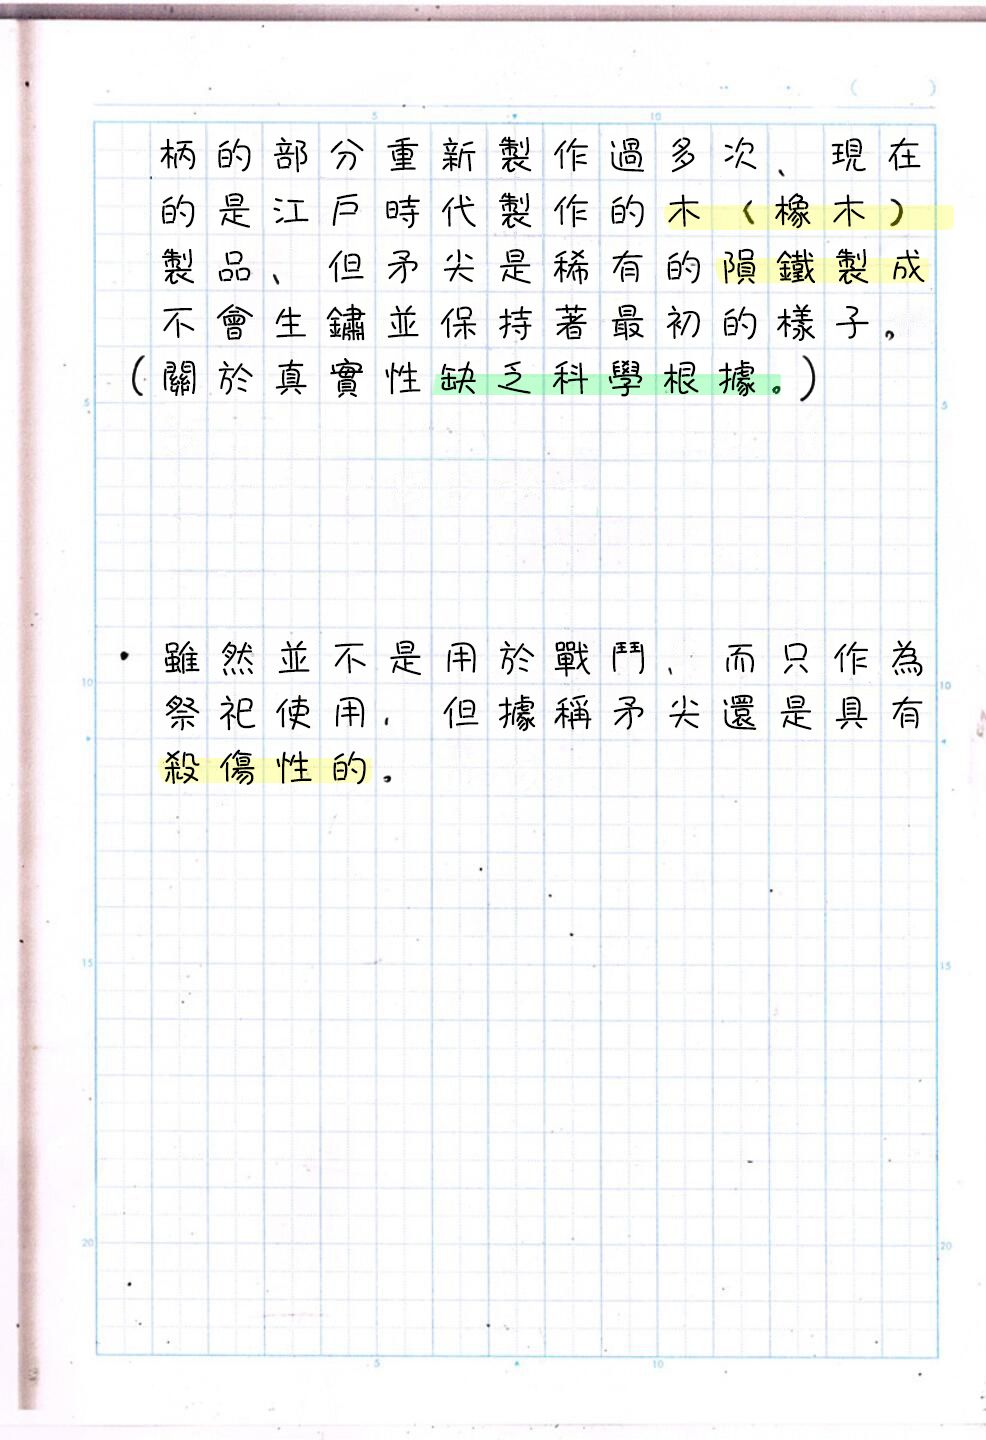 柄的部分重新製作過多次、現在
的是江戶時代製作的木（橡木）
製品、但矛尖是稀有的隕鐵製成
不會生鏽並保持著最初的樣子。
(關於真實性缺乏科學根據。)
・雖然並不是用於戰鬥、而只作為
祭祀使用、但據稱矛尖還是具有
殺傷性的。
5 10
5 5
10 10
15 15
20 20
5 10